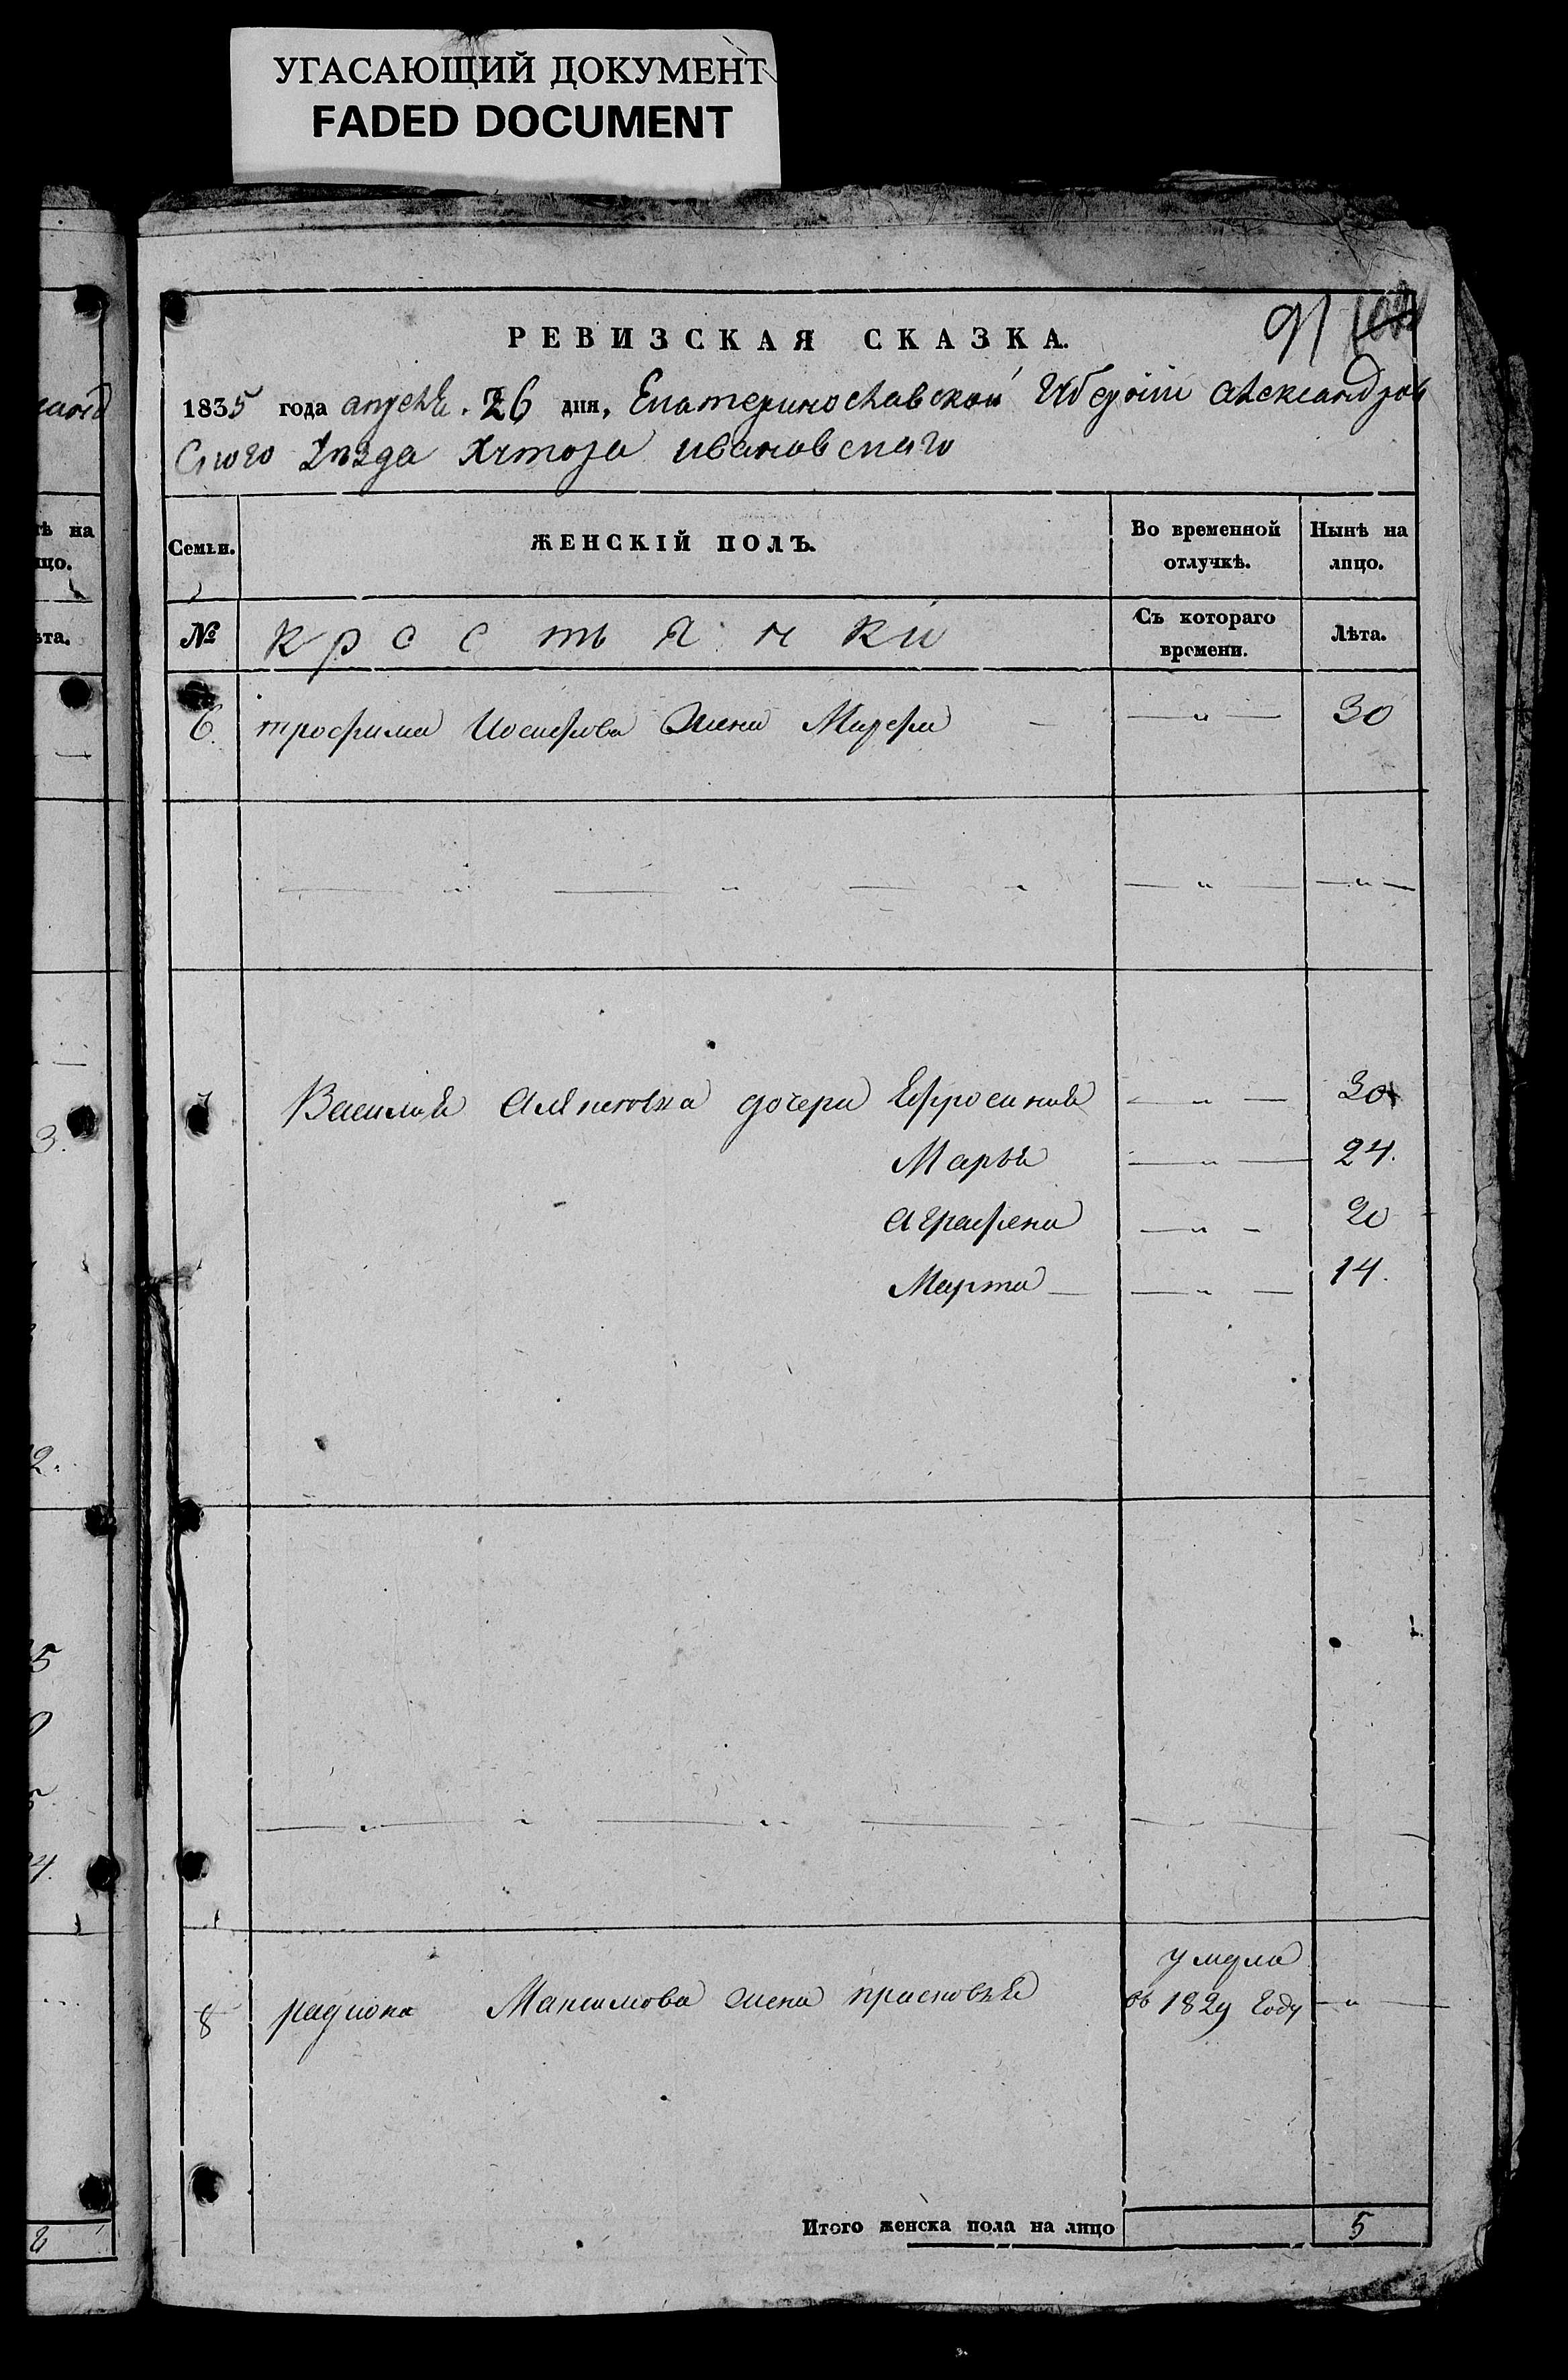 УГАСАЮЩИЙ ДОКУМЕНТ
FADED DOCUMENT
91
РЕВИЗСКАЯ СКАЗКА.
1835 года апреля 26 дня, Екатериносławской Губерніи Александров
Скаго Уезда Хутора ивановскаго
Семьи. ЖЕНСКІЙ ПОЛЪ. Во временной отлучкѣ. Нынѣ на лицо.
№ крестьянки Съ котораго времени. Лѣта.
6. трофима Иосифова жена Марфа — — „ — 30
— „ — „ — „ — „ — — „ —
7 Василия дочери Ефросиния — „ — 30
Марья — „ — 24.
Аграфена — „ — 20
Марта — — „ — 14.
умерла
8 радиона Максимова жена прасковья въ 1829 году — „ —
Итого женска пола на лицо 5